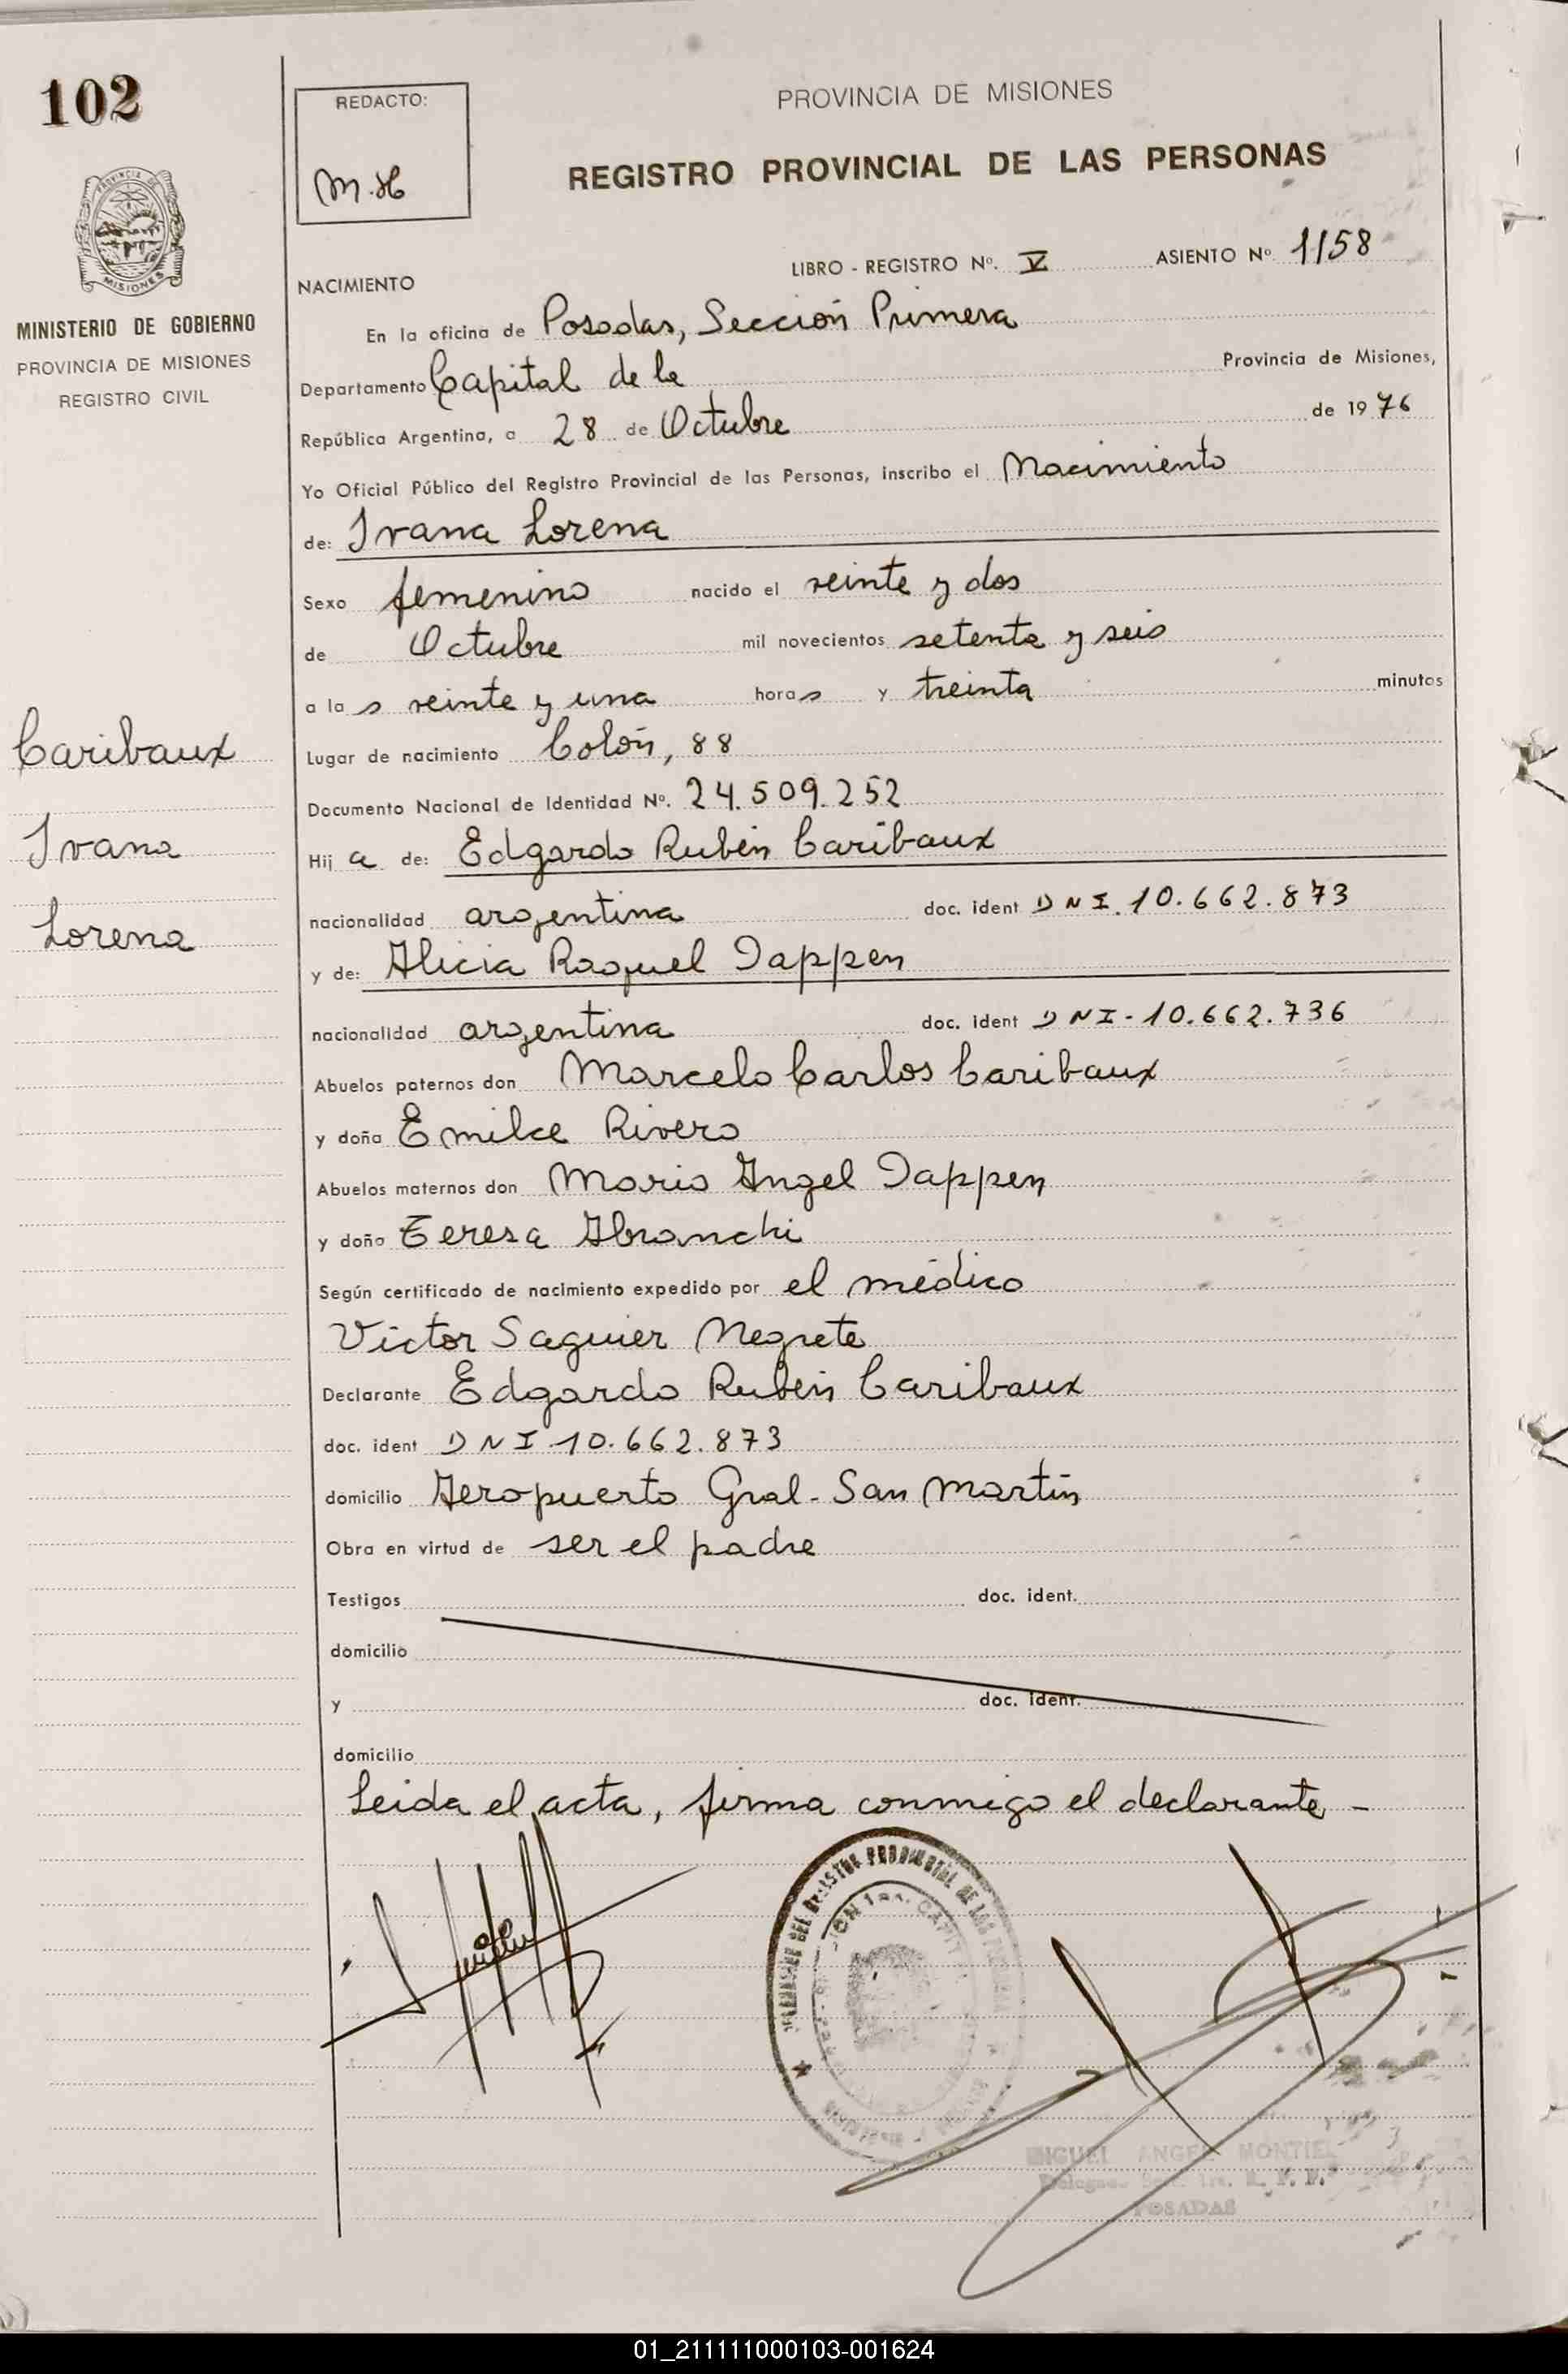 102
REDACTO:
M.H
PROVINCIA DE MISIONES
REGISTRO PROVINCIAL DE LAS PERSONAS
PROVINCIA DE
MISIONES
MINISTERIO DE GOBIERNO
PROVINCIA DE MISIONES
REGISTRO CIVIL
LIBRO - REGISTRO Nº. V ASIENTO Nº 1158
NACIMIENTO
En la oficina de Posadas, Sección Primera
Departamento Capital de la Provincia de Misiones,
República Argentina, a 28 de Octubre de 1976
Yo Oficial Público del Registro Provincial de las Personas, inscribo el Nacimiento
de: Ivana Lorena
Sexo femenino nacido el veinte y dos
de Octubre mil novecientos setenta y seis
a las veinte y una horas y treinta minutos
Lugar de nacimiento Colón, 88
Documento Nacional de Identidad Nº. 24.509.252
Hija de: Edgardo Rubén Caribaux
nacionalidad argentina doc. ident DNI. 10.662.873
y de: Alicia Raquel Dappen
nacionalidad argentina doc. ident DNI-10.662.736
Abuelos paternos don Marcelo Carlos Caribaux
y doña Emilce Rivero
Abuelos maternos don Mario Angel Dappen
y doña Teresa Abranchi
Según certificado de nacimiento expedido por el médico
Victor Saguier Negrete
Declarante Edgardo Rubén Caribaux
doc. ident DNI 10.662.873
domicilio Aeropuerto Gral. San Martín
Obra en virtud de ser el padre
Testigos doc. ident.
domicilio
y doc. ident.
domicilio
Leida el acta, firma conmigo el declarante -
Caribaux
Ivana
Lorena
DEL REGISTRO PROVINCIAL DE LAS
MIGUEL ANGEL MONTIEL
POSADAS
01_211111000103-001624